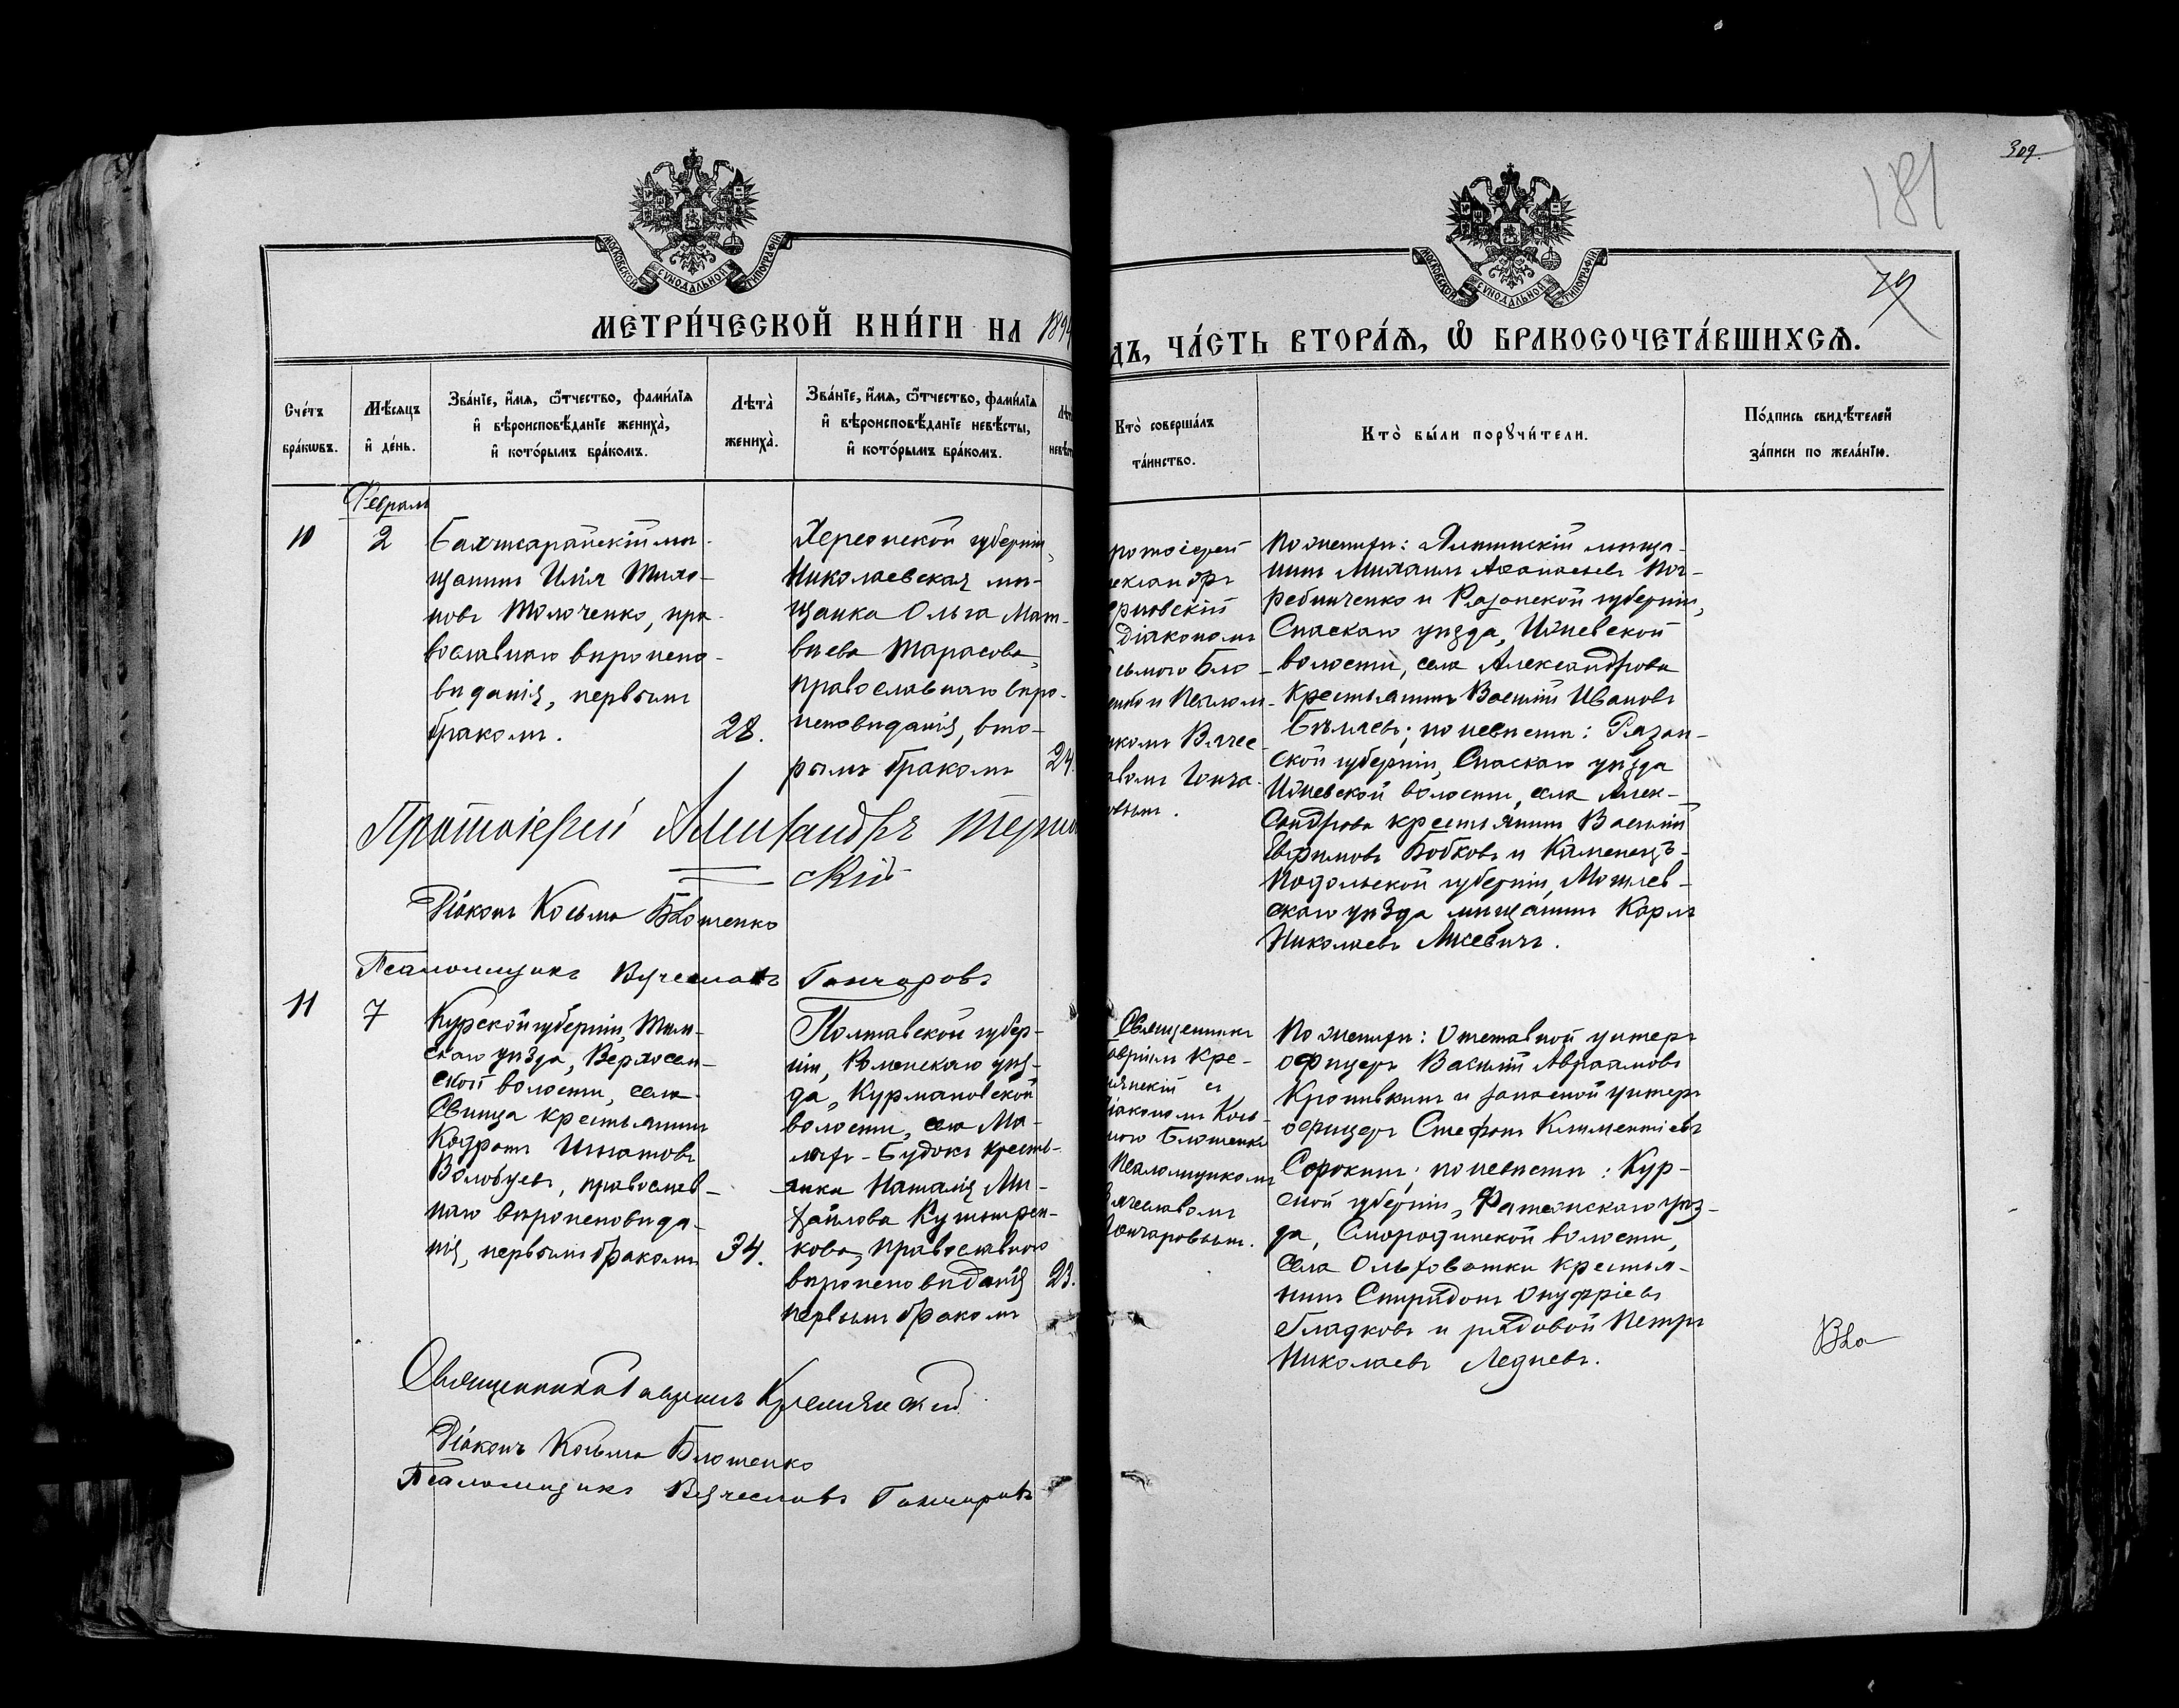 309.
181
79
МОСКОВСКОЙ СѴНОДАЛЬНОЙ ТИПОГРАФІИ
МОСКОВСКОЙ СѴНОДАЛЬНОЙ ТИПОГРАФІИ
МЕТРИ́ЧЕСКОЙ КНИ́ГИ НА 1894
ДЪ, ЧА́СТЬ ВТОРА́Ѧ, Ѡ҆ БРАКОСОЧЕТА́ВШИХСѦ.
Сче́тъ
бра́кѡвъ.
Мѣ́сяцъ
и҆ де́нь.
Зва́нїе, и҆́мя, ѻ҆́тчество, фами́лїя
и҆ вѣроисповѣ́данїе жениха̀,
и҆ кото́рымъ бра́комъ.
Лѣта̀
жениха̀.
Зва́нїе, и҆́мя, ѻ҆́тчество, фами́лїя
и҆ вѣроисповѣ́данїе невѣ́сты,
и҆ кото́рымъ бра́комъ.
Кто̀ соверша́лъ
та́инство.
Кто̀ бы́ли порꙋчи́тели.
По́дпись свидѣ́телей
за́писи по жела́нїю.
Февраль
10
2
Бахчисарайскій мѣ-
щанинъ Илія Тихо-
новъ Толоченко, пра-
вославнаго вѣроиспо-
вѣданія, первымъ
бракомъ.
28.
Херсонской губерніи,
Николаевская мѣ-
щанка Ольга Мат-
вѣева Тарасова,
православнаго вѣро-
исповѣданія, вто-
рымъ бракомъ
24.
ротоіерей
ександръ
рновскій
Діакономъ
сьмою Бло
енко и Псалом-
икомъ Вячес-
авомъ Гонча-
овымъ.
По женихѣ: Ялтинскій мѣща-
нинъ Михаилъ Аѳанасьевъ Пог-
ребниченко и Рязанской губерніи,
Спаскаго уѣзда, Ижевской
волости, села Александрова
крестьянинъ Василій Ивановъ
Бѣляевъ; по невѣстѣ: Рязан-
ской губерніи, Спаскаго уѣзда
Ижевской волости, села Алек-
сандрова крестьянинъ Василій
Евфимовъ Бобковъ и Каменецъ-
Подольской губерніи, Могилев-
скаго уѣзда мѣщанинъ Карпъ
Николаевъ Лисевичъ.
Протоіерей Александръ Терно
скій
Діаконъ Косьма Блошенко
Псаломщикъ Вячеславъ Гончаровъ
11
7
Курской губерніи, Тим-
скаго уѣзда, Верхосем-
ской волости, села
Свинца крестьянинъ
Кодратъ Игнатовъ
Волобуевъ, православ-
наго вѣроисповѣда-
нія, первымъ бракомъ
34.
Полтавской губер-
ніи, Роменскаго уѣз-
да, Курмановской
волости, села Ма-
лыхъ-Будокъ кресть-
янка Наталія Ми-
хайлова
кова, православнаго
вѣроисповѣданія
первымъ бракомъ
23.
Священникъ
авріилъ Кре-
янскій съ
іакономъ Кось-
мою Блошенко
Псаломщикомъ
ячеславомъ
ончаровымъ.
По женихѣ: Отставной унтеръ
офицеръ Василій Авраамовъ
Кропивкинъ и запасной унтеръ
офицеръ Стефанъ Климентіевъ
Сорокинъ; по невѣстѣ: Кур-
ской губерніи, Фатежскаго уѣз-
да, Смородинской волости,
села Ольховатки крестья-
нинъ Спиридонъ Онуфріевъ
Гладковъ и рядовой Петръ
Николаевъ Ледневъ.
Священникъ Гавріилъ Кремянскій
Діаконъ Косьма Блошенко
Псаломщикъ Вячеславъ Гончаровъ